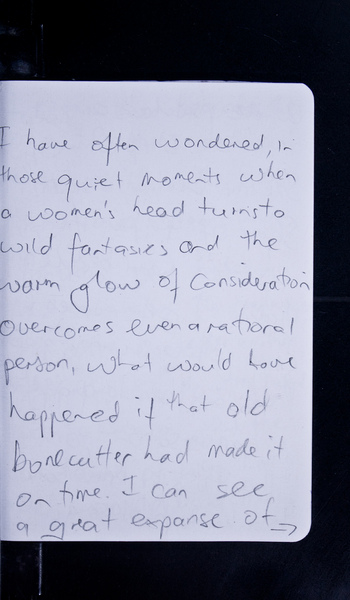 I have often wondered, in
those quiet moments when
a women's head turns to
wild fantasies and the
warm glow of Consideration
overcomes even a rational
person, what would have
happened if that old
bonecutter had made it
on time. I can see
a great expanse of →